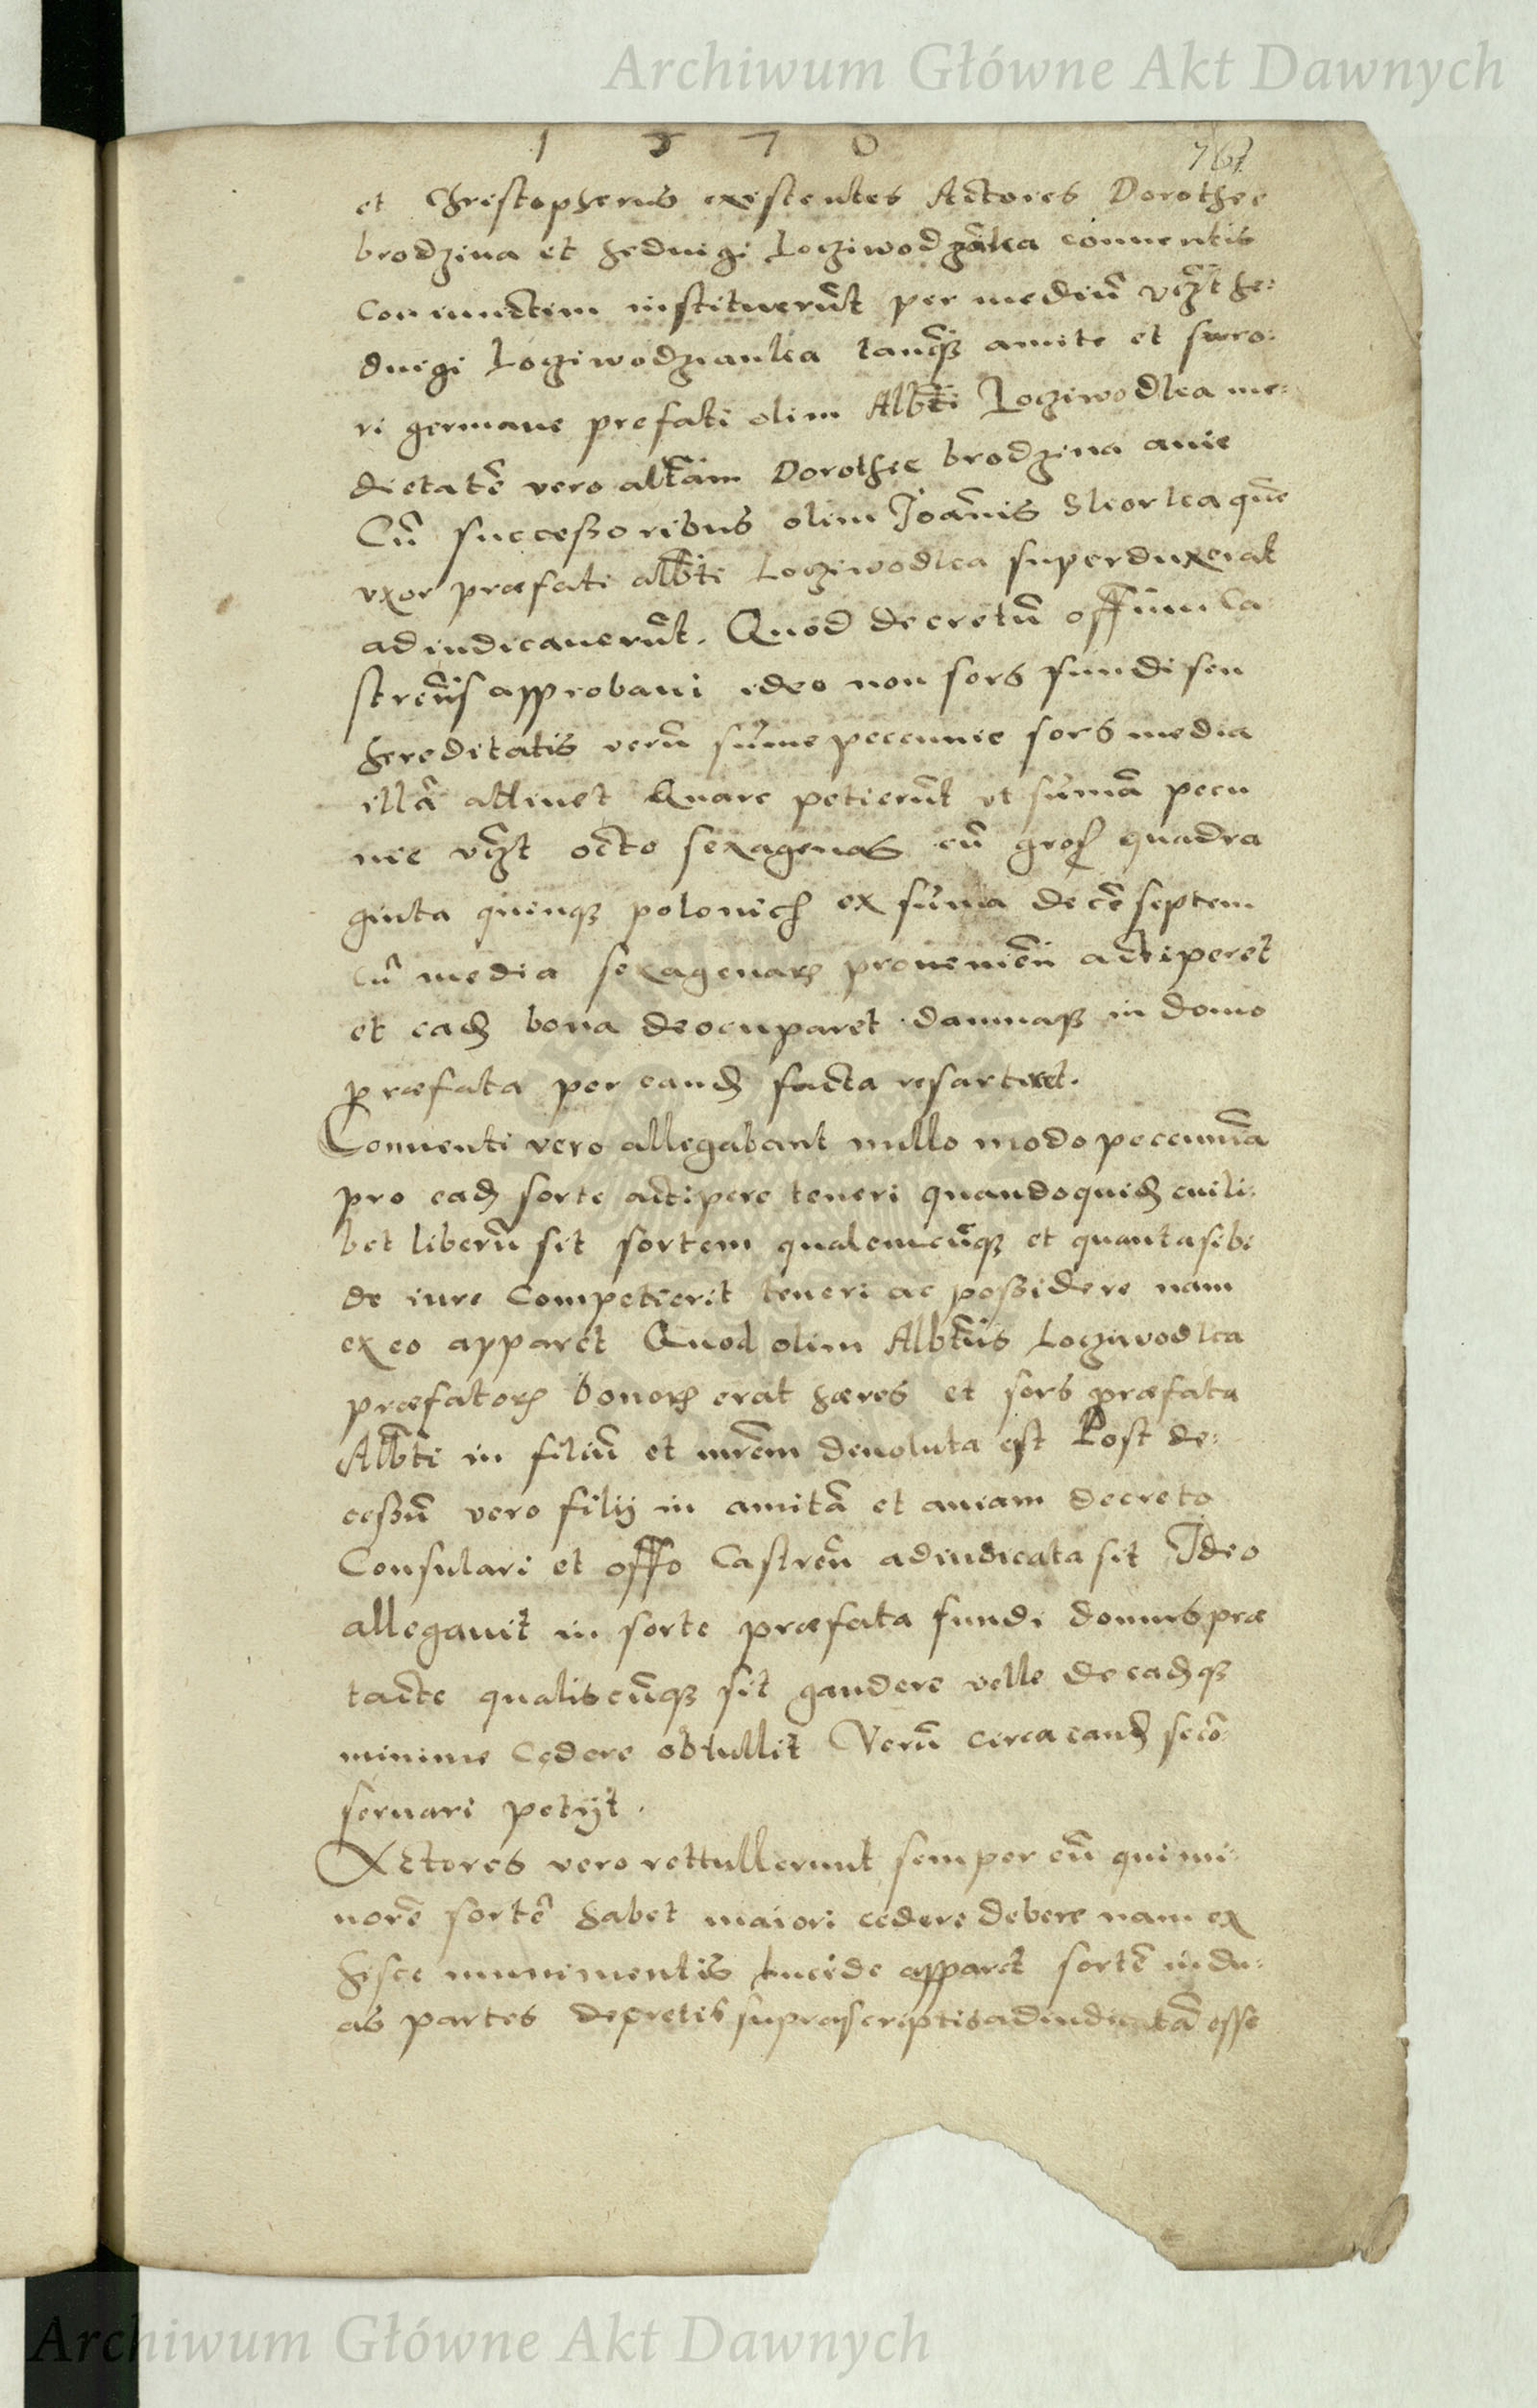 Archiwum Główne Akt Dawnych
1 5 7 0
761
et Christopherus existentes Actores Dorothee
brodzina et hedwigi Logziwodzãka conuentis
coniunctim instituerũt per mediũ vcz̃t he:
dwigi Logziwodzianka tanq̃ꝫ amite et soro:
ri germane prefati olim Alb̃ti Logziwodka me:
dietatẽ vero alt̃am Dorothee brodzina auie
Cũ successoribus olim Joãnis Skorka quẽ
vxor præfati alb̃ti Logziwodka superduxerat
adiudicauerũt. Quod decretũ offiũm Ca
streñs approbaui ideo non sors fundi seu
hereditatis verũ sũme pecunnie sors media
illã attinet Quare petierũt vt sũmã pecu
nie vcz̃t octo sexagenas cũ gros quadra
ginta quinqꝫ polonich ex sũma decẽ septem
cũ media sexagenarꝫ proueniẽn accipe­ret
et eadꝫ bona deocuparet damnaqꝫ in domo
præfata per eandꝫ facta resartiret.
Conuenti vero allegabant nullo modo pecunniã
pro eadꝫ sorte accipere teneri quandoquidꝫ cuili:
bet liberũ sit sortem qualemcũqꝫ et quanta sibi
de iure Competierit teneri ac possidere nam
ex eo apparet Quod olim Alb̃tus Logziwodka
præfatorꝫ bonorꝫ erat hæres et sors præfata
Alb̃ti in filiũ et mr̃em deuoluta est Post de:
cessũ vero filij in amitã et auiam decreto
Consulari et offo Castreñ adiudicata sit Ideo
allegauit in sorte præfata fundi domus præ
tacte qualiscũqꝫ sit gaudere velle de eadꝫqꝫ
minime Cedere obtullit Verũ circa eandꝫ se cõ
seruari petijt.
Actores vero rettullerunt semper eũ qui mi:
norẽ sortẽ habet maiori cedere debere nam ex
hisce munimentis lucide apparet sortẽ in du:
as partes decretis suprascriptis adiudicatã esse
Archiwum Główne Akt Dawnych